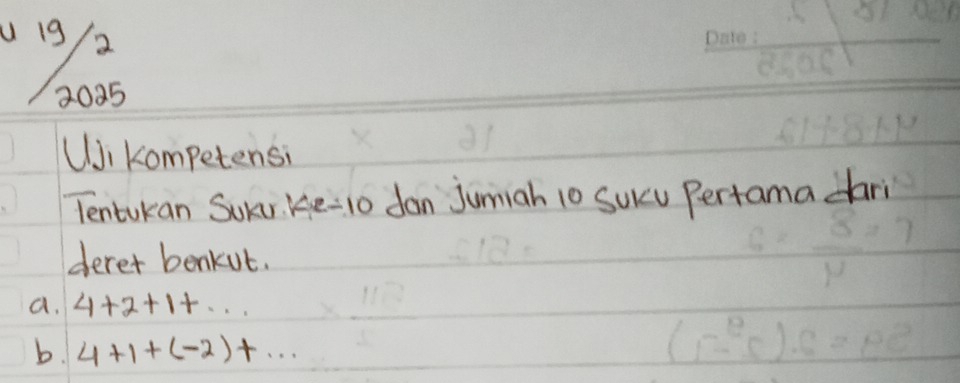 u 19/2
2025
Date:
Uji Kompetensi
Tentukan Suku Ke-10 dan jumlah 10 suku Pertama dari
deret berikut.
a. 4+2+1+...
b. 4+1+(-2)+...